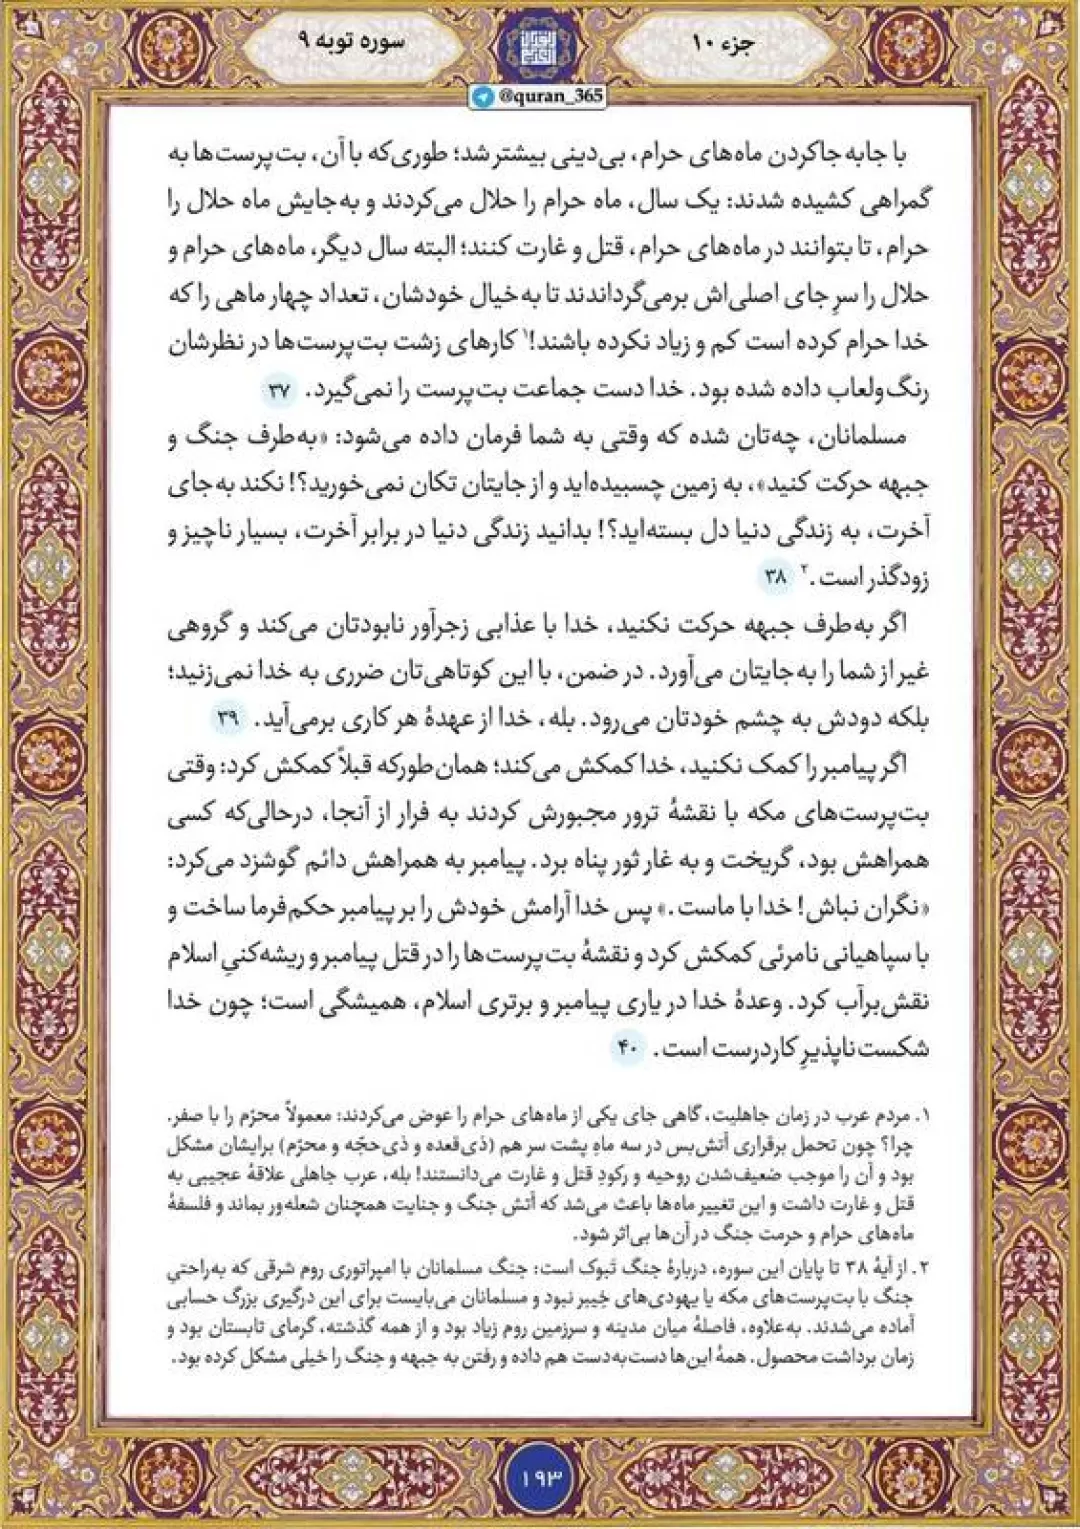 جزء ۱۰
سوره توبه ۹
@quran_365
با جابه جاکردن ماه‌های حرام، بی‌دینی بیشتر شد؛ طوری‌که با آن، بت‌پرست‌ها به
گمراهی کشیده شدند: یک سال، ماه حرام را حلال می‌کردند و به‌جایش ماه حلال را
حرام، تا بتوانند در ماه‌های حرام، قتل و غارت کنند؛ البته سال دیگر، ماه‌های حرام و
حلال را سرِ جای اصلی‌اش برمی‌گرداندند تا به خیال خودشان، تعداد چهار ماهی را که
خدا حرام کرده است کم و زیاد نکرده باشند!۱ کارهای زشت بت‌پرست‌ها در نظرشان
رنگ‌ولعاب داده شده بود. خدا دست جماعت بت‌پرست را نمی‌گیرد. ۳۷
مسلمانان، چه‌تان شده که وقتی به شما فرمان داده می‌شود: «به‌طرف جنگ و
جبهه حرکت کنید»، به زمین چسبیده‌اید و از جایتان تکان نمی‌خورید؟! نکند به جای
آخرت، به زندگی دنیا دل بسته‌اید؟! بدانید زندگی دنیا در برابر آخرت، بسیار ناچیز و
زودگذر است.۲ ۳۸
اگر به‌طرف جبهه حرکت نکنید، خدا با عذابی زجرآور نابودتان می‌کند و گروهی
غیر از شما را به‌جایتان می‌آورد. در ضمن، با این کوتاهی‌تان ضرری به خدا نمی‌زنید؛
بلکه دودش به چشم خودتان می‌رود. بله، خدا از عهدهٔ هر کاری برمی‌آید. ۳۹
اگر پیامبر را کمک نکنید، خدا کمکش می‌کند؛ همان‌طورکه قبلاً کمکش کرد: وقتی
بت‌پرست‌های مکه با نقشهٔ ترور مجبورش کردند به فرار از آنجا، درحالی‌که کسی
همراهش بود، گریخت و به غار ثور پناه برد. پیامبر به همراهش دائم گوشزد می‌کرد:
«نگران نباش! خدا با ماست.» پس خدا آرامش خودش را بر پیامبر حکم‌فرما ساخت و
با سپاهیانی نامرئی کمکش کرد و نقشهٔ بت‌پرست‌ها را در قتل پیامبر و ریشه‌کنیِ اسلام
نقش‌برآب کرد. وعدهٔ خدا در یاری پیامبر و برتری اسلام، همیشگی است؛ چون خدا
شکست‌ناپذیرِ کاردرست است. ۴۰
۱. مردم عرب در زمان جاهلیت، گاهی جای یکی از ماه‌های حرام را عوض می‌کردند: معمولاً محرّم را با صفر.
چرا؟ چون تحمل برقراری آتش‌بس در سه ماهِ پشت سر هم (ذی‌قعده و ذی‌حجّه و محرّم) برایشان مشکل
بود و آن را موجب ضعیف‌شدن روحیه و رکودِ قتل و غارت می‌دانستند! بله، عرب جاهلی علاقهٔ عجیبی به
قتل و غارت داشت و این تغییر ماه‌ها باعث می‌شد که آتش جنگ و جنایت همچنان شعله‌ور بماند و فلسفهٔ
ماه‌های حرام و حرمت جنگ در آن‌ها بی‌اثر شود.
۲. از آیهٔ ۳۸ تا پایان این سوره، دربارهٔ جنگ تَبوک است: جنگ مسلمانان با امپراتوری روم شرقی که به‌راحتیِ
جنگ با بت‌پرست‌های مکه یا یهودی‌های خِیبر نبود و مسلمانان می‌بایست برای این درگیری بزرگ حسابی
آماده می‌شدند. به‌علاوه، فاصلهٔ میان مدینه و سرزمین روم زیاد بود و از همه گذشته، گرمای تابستان بود و
زمان برداشت محصول. همهٔ این‌ها دست‌به‌دست هم داده و رفتن به جبهه و جنگ را خیلی مشکل کرده بود.
۱۹۳